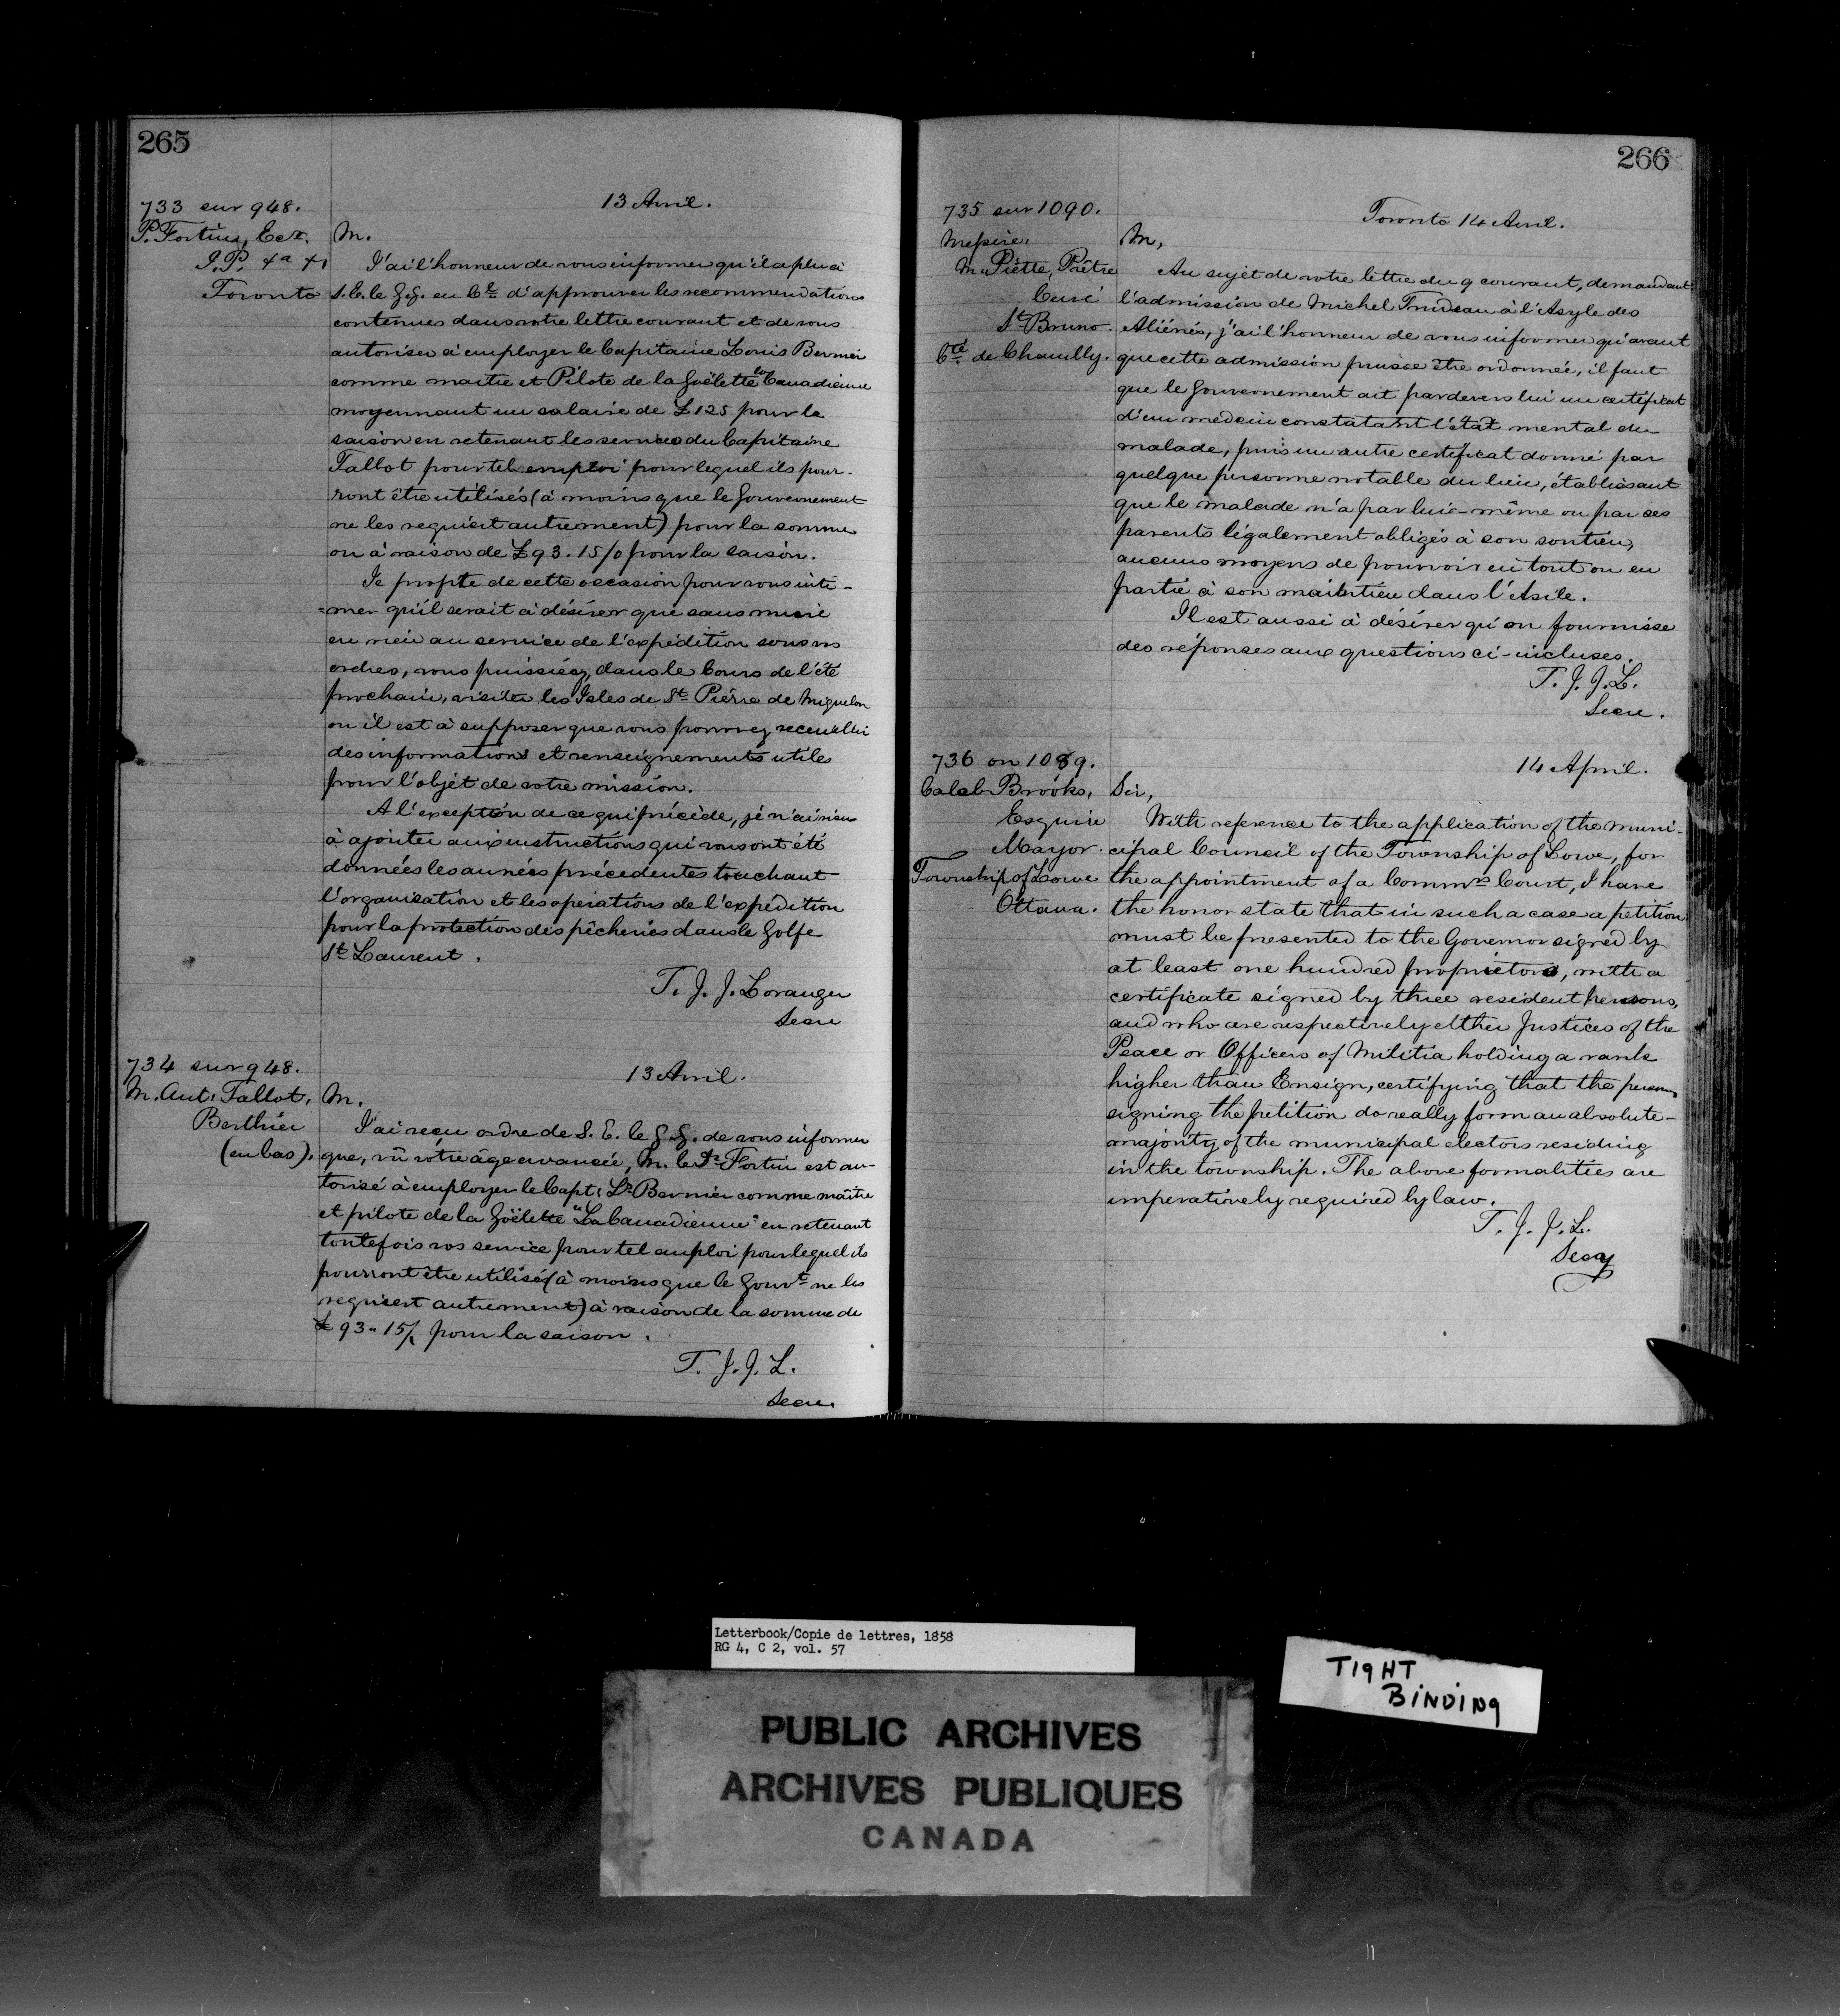 265
733 sur 948.
13 Avril.
P. Fortin, Ecr.
J.P. &a &a
Toronto
M.
J'ai l'honneur de vous informer qu'il a plu à
S.E. le G.G. en Cl. d'approuver les recommendations
contenues dans votre lettre courant et de vous
autoriser à employer le Capitaine Louis Bernier
comme maitre et Pilote de la Goëlette la Canadienne
moyennant un salaire de £125 pour la
saison en retenant les services du Capitaine
Tallot pour tel emploi pour lequel ils pour-
ront être utilisés (à moins que le Gouvernement
ne les requiert autrement) pour la somme
ou à raison de £93.15/0 pour la saison.
Je profite de cette occasion pour vous inti-
=mer qu'il serait à désirer que sans nuire
en rien au service de l'expédition sous vos
ordres, vous puissiéz, dans le Cours de l'été
prochain, visiter les Isles de St. Piérre de Miquelon
ou il est à supposer que vous pourrez recueillir
des informations et renseignements utiles
pour l'objet de votre mission.
A l'exception de ce qui précède, je n'ai rien
à ajouter aux instructions qui vous ont été
données les années précedentes touchant
l'organisation et les opérations de l'expédition
pour la protection des pêcheries dans le Golfe
St. Laurent.
T. J. J. Loranger
Secre
734 sur 948.
13 Avril.
M. Ant. Tallot,
Berthier
(en bas).
M.
J'ai reçu ordre de S. E. le G.G. de vous informer
que, vû vôtre âge avancée, M. le Dr. Fortin est au-
torisé à employer le Capt. Ls. Bernier comme maître
et pilote de la Goëlette "La Canadienne" en retenant
toutefois vos service pour tel emploi pour lequel ils
pourront être utilisés (à moins que le Gouvt. ne les
requiert autrement) à raison de la somme de
£93..15/ pour la saison.
T. J. J. L.
Secre.
266
735 sur 1090.
Toronto 14 Avril.
Messire.
M. Piétte, Prêtre
Curé
St. Bruno.
Cté. de Chambly.
M,
Au sujet de votre lettre du 9 courant, demandant
l'admission de Michel Trudeau à l'Asyle des
Aliénés, j'ai l'honneur de vous informer qu'avant
que cette admission puisse être ordonnée, il faut
que le Gouvernement ait pardevers lui un certificat
d'un medecin constatant l'état mental du
malade, puis un autre certificat donné par
quelque personne notable du lieu, établissant
que le malade n'a par lui-même ou par ses
parents légalement obligés à son soutien,
aucuns moyens de pourvoir en tout ou en
partie à son maintien dans l'Asile.
Il est aussi à désirer qu'on fournisse
des réponses aux questions ci-incluses.
T. J. J. L.
Secre.
736 on 1089.
14 April.
Caleb Brooks,
Esquire
Mayor.
Township of Lowe
Ottawa.
Sir,
With reference to the application of the Muni-
cipal Council of the Township of Lowe, for
the appointment of a Commrs. Court, I have
the honor state that in such a case a petition
must be presented to the Governor signed by
at least one hundred proprietors, with a
certificate signed by three resident persons,
and who are respectively either Justices of the
Peace or Officers of Militia holding a rank
higher than Ensign, certifying that the persons
signing the petition do really form an absolute
majority of the municipal electors residing
in the township. The above formalities are
imperatively required by law.
T. J. J. L.
Secy
Letterbook/Copie de lettres, 1858
RG 4, C 2, vol. 57
TIGHT
BINDING
PUBLIC ARCHIVES
ARCHIVES PUBLIQUES
CANADA